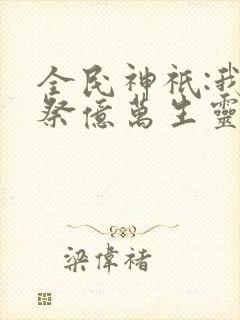 全民神祇:我
祭億萬生靈
梁偉褚